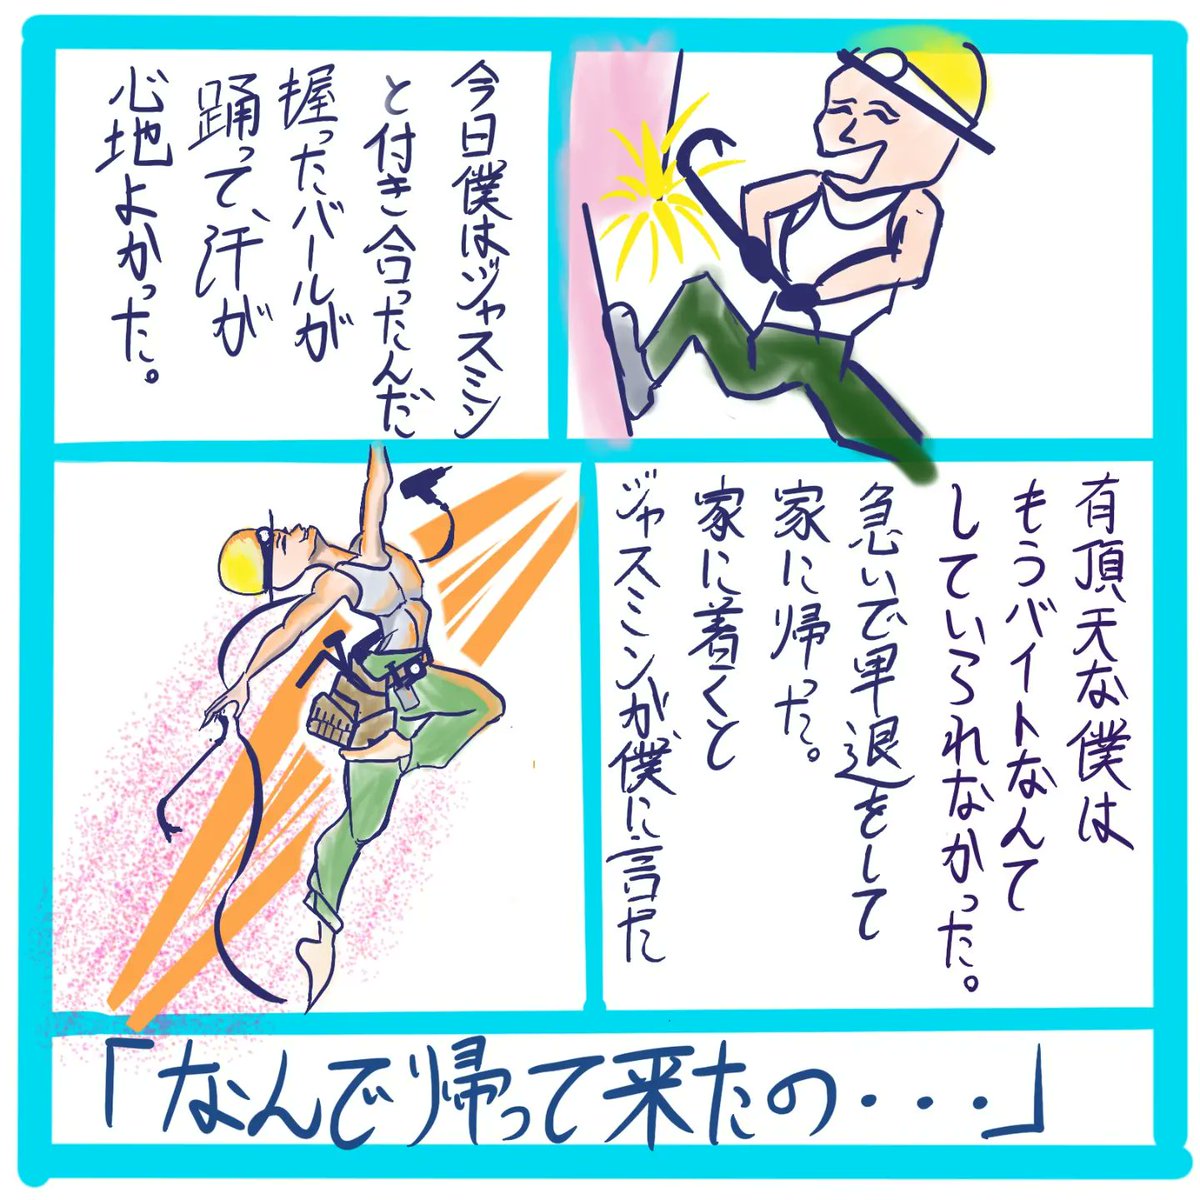 今日僕はジャスミン
と付き合ったんだ
握ったバールが
踊って、汗が
心地よかった。
有頂天な僕は
もうバイトなんて
していられなかった。
急いで早退をして
家に帰った。
家に着くと
ジャスミンが僕に言った
「なんで帰って来たの・・・」